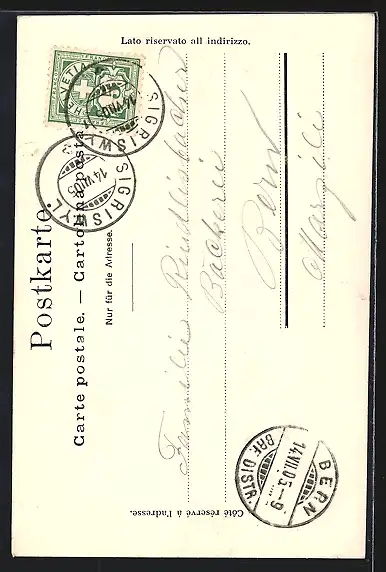 Lato riservato all indirizzo.
Postkarte.
Carte postale. — Cartolina postale.
Nur für die Adresse.
HELVETIA
SIGRISWYL
14.VII.05
SIGRISWYL
14.VII.05
Familie Rindlisbacher
Bäckerei
Bern
Marzili
BERN
14.VII.05.–9
BRF. DISTR.
Côté réservé à l'adresse.